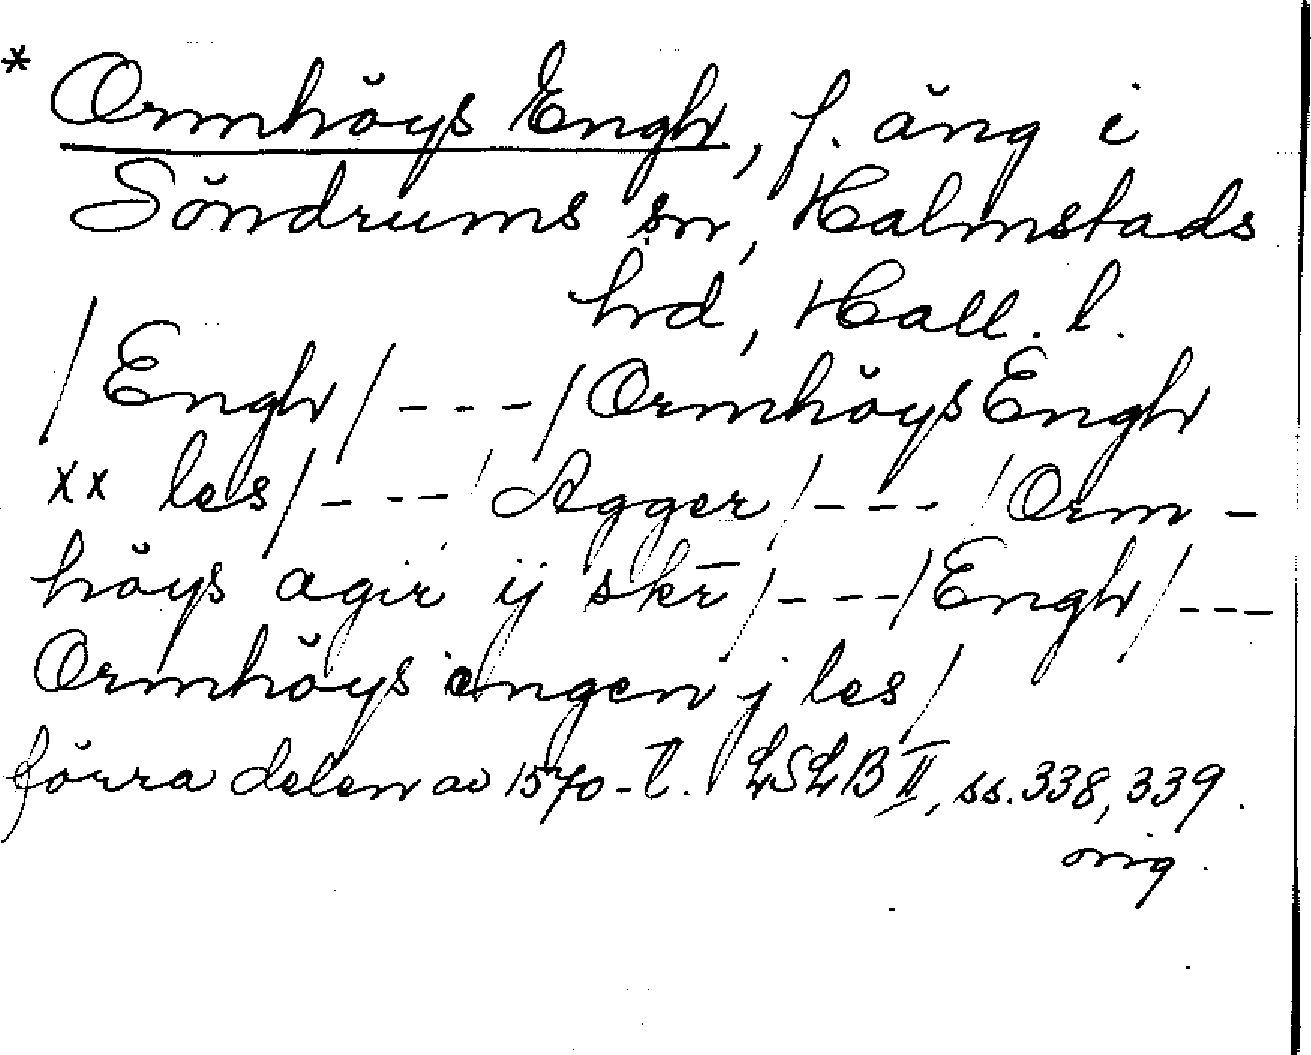 * Ormhöys Engh, f. äng i
Söndrums sn, Halmstads
hd, Hall. l.
/Engh/---/Ormhöys Engh
xx les/---/Agger/---/Orm-
höys agir ij skr̄/---/Engh/---
Ormhöys engen j les/
förra delen av 1570-t. LSLB II, ss. 338, 339.
orig.